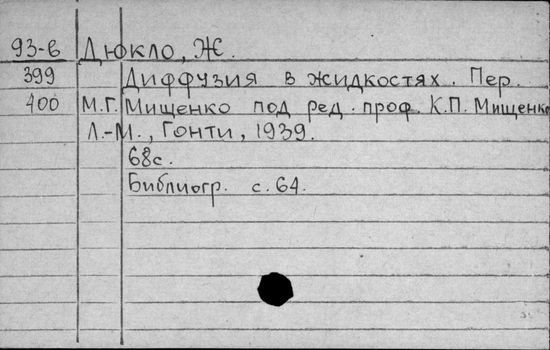 93-6 Дюкло, Ж.
399 Диффузия в жидкостях. Пер.
400 М.Г. Мищенко под ред. проф. К.П. Мищенко
Л.-М., Гонти, 1939.
68с.
Библиогр. с. 64.